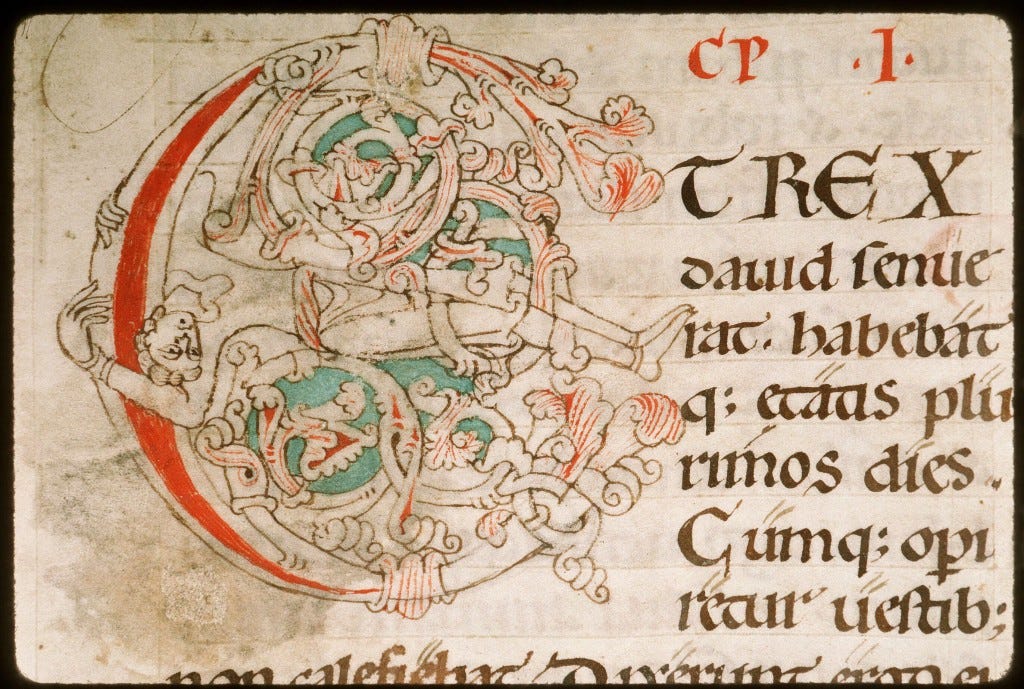 CP · I ·
ET REX
dauid senue
rat. habebat
q; etatis plu
rimos dies.
Cumq; opi
retur uestib;
non calefiebat. Dixerunt ergo ei